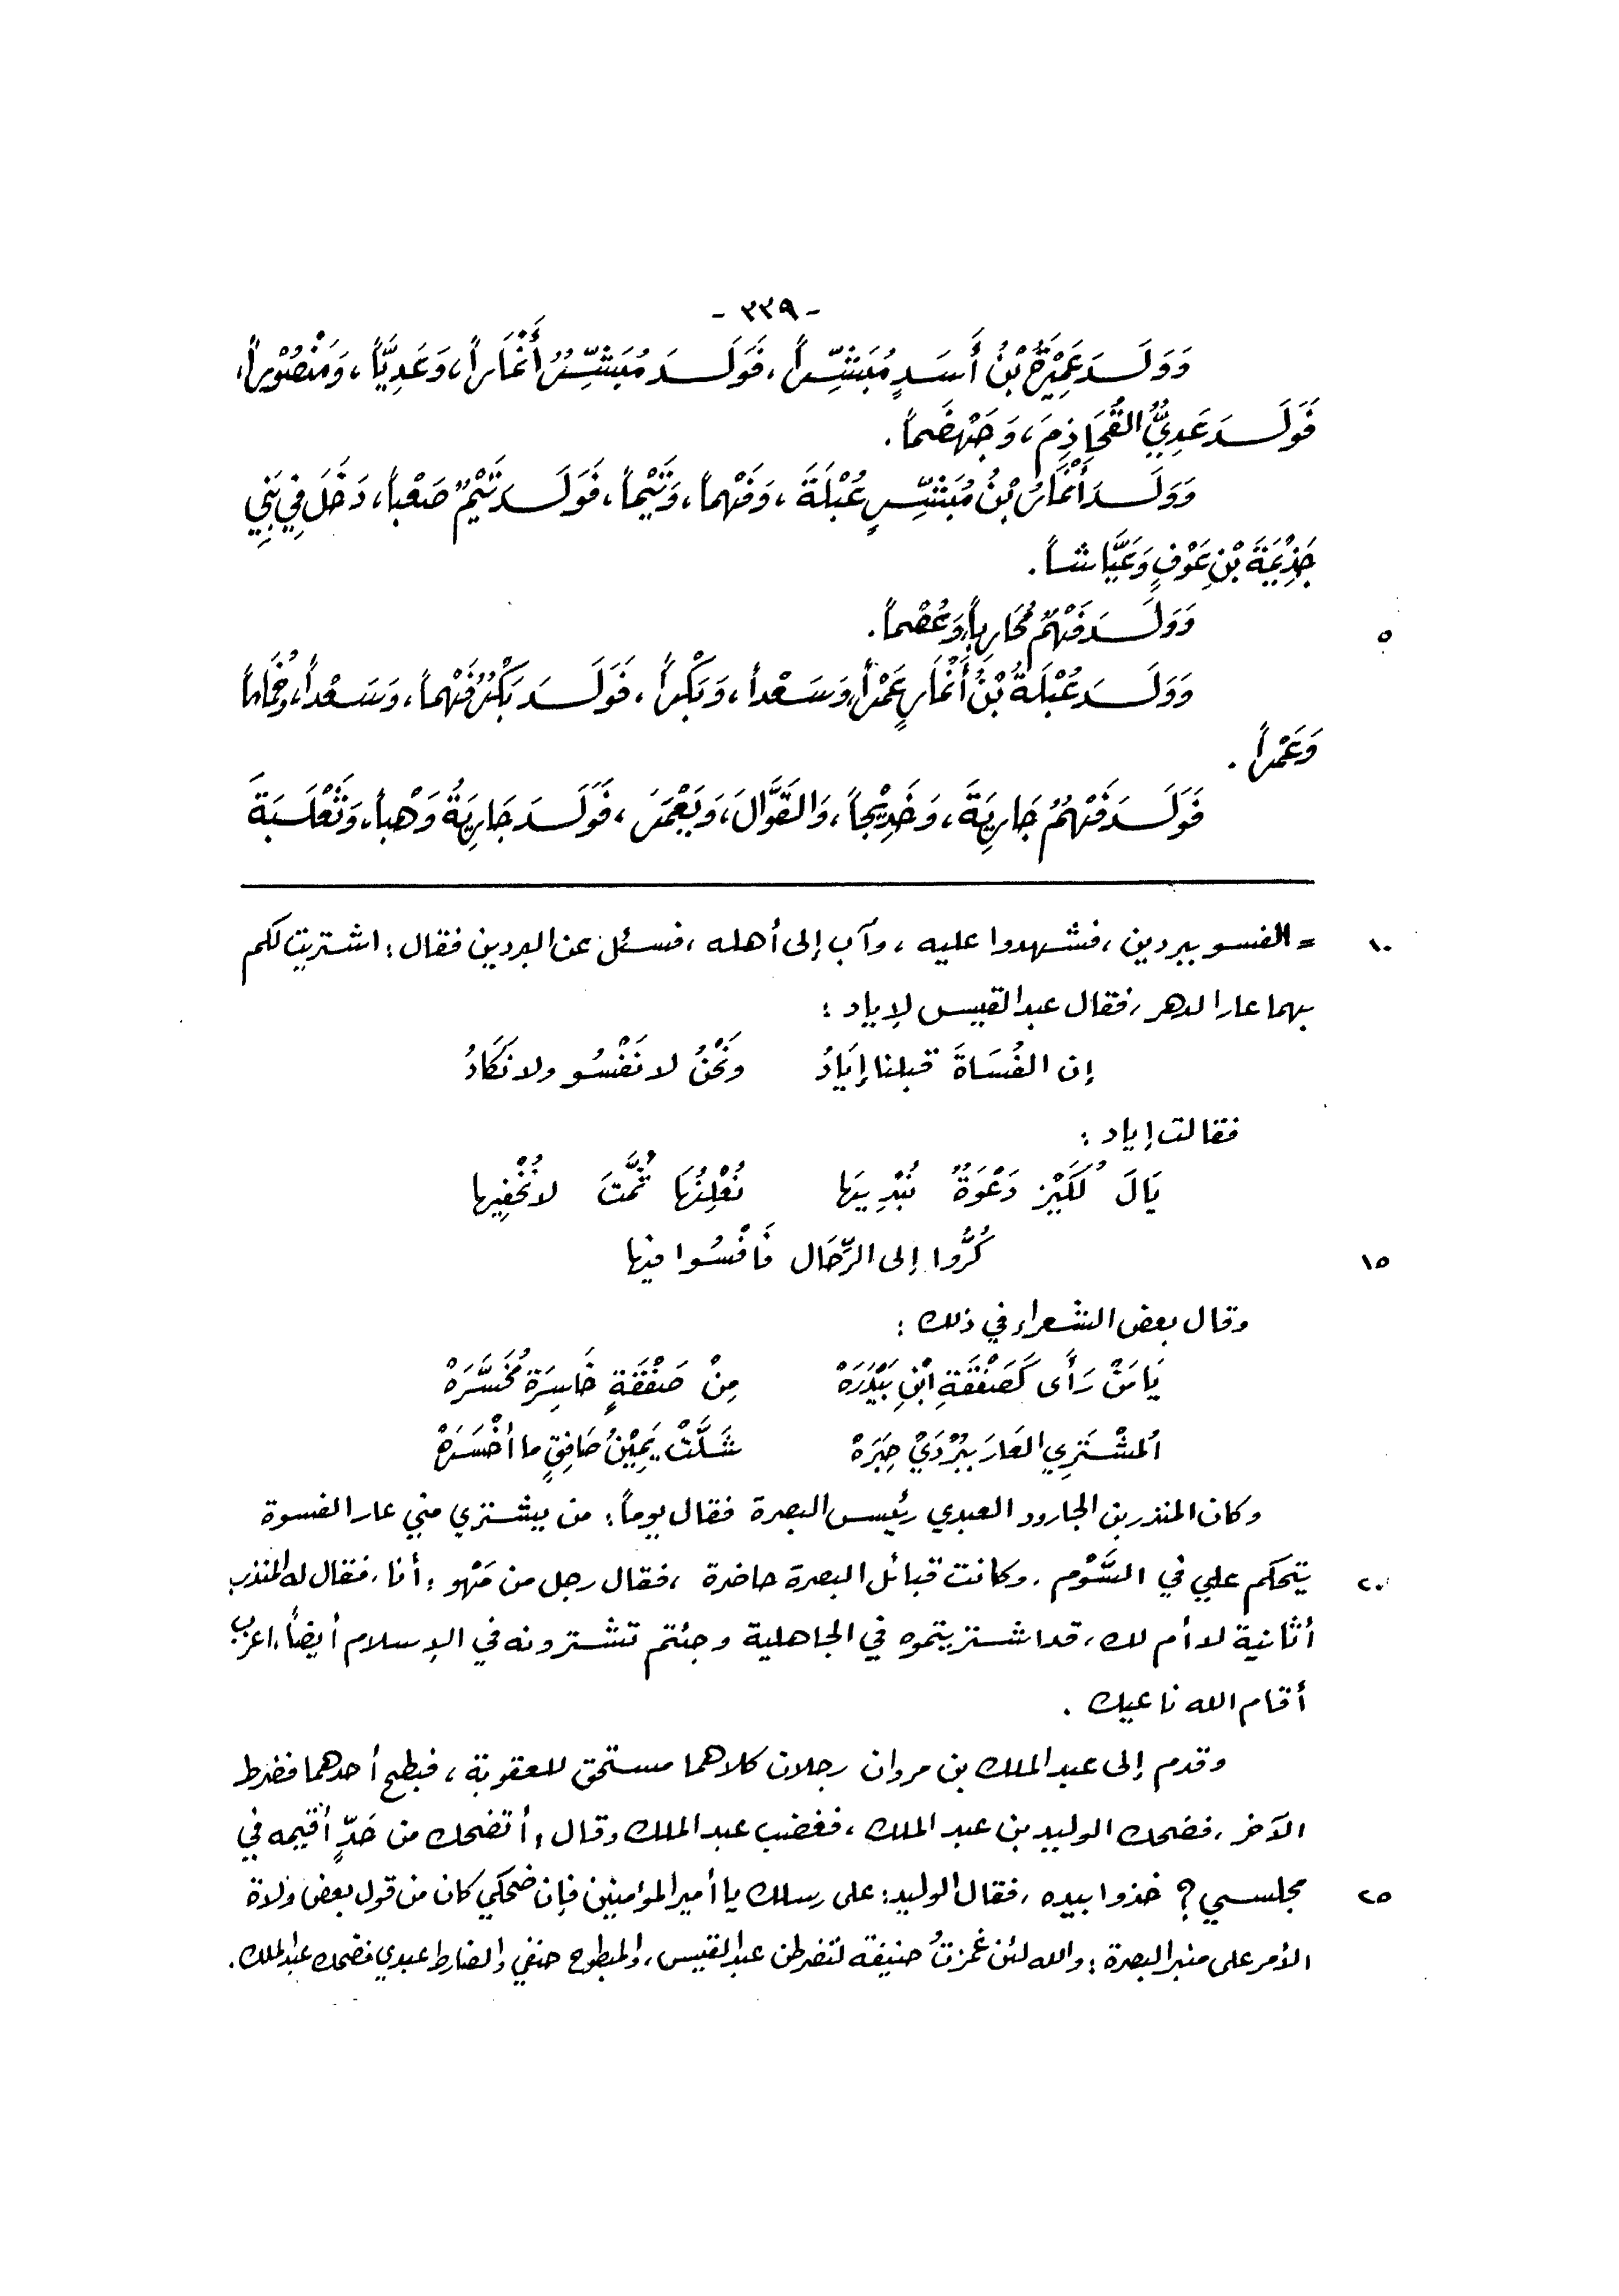 - ٣٣٩ -
وَوَلَـدَ عَمِيْرَةُ بْنُ أَسَدٍ مُبَشِّراً، فَوَلَـدَ مُبَشِّرٌ أَنْمَاراً، وَعَدِيَّاً، وَمَنْصُوْراً،
فَوَلَـدَ عَدِيٌّ القُحَاذِمَ، وَجَهْضَماً.
وَوَلَـدَ أَنْمَارُ بْنُ مُبَشِّرٍ عُبْلَةَ، وَفَهْماً، وَتَيْماً، فَوَلَـدَ تَيْمٌ صَعْباً، دَخَلَ فِي بَنِي
جَذِيْمَةَ بْنِ عَوْفٍ وَعَيَّاشاً.
وَوَلَـدَ فَهْمٌ مُحَارِباً، وَعُصْماً.
٥
وَوَلَـدَ عُبْلَةُ بْنُ أَنْمَارٍ عَمْراً، وَسَعْداً، وَبَكْراً، فَوَلَـدَ بَكْرٌ فَهْماً، وَسَعْداً، وَخُمَاماً
وَعَمْراً.
فَوَلَـدَ فَهْمٌ جَارِيَةَ، وَخَدِيْجاً، وَالقَوَّالَ، وَيَعْمَرَ، فَوَلَـدَ جَارِيَةُ وَهْباً، وَثَعْلَبَةَ
١٠ = الفسو ببردين، فشهدوا عليه، وآب إلى أهله، فسئل عن البردين فقال: اشتريت لكم
بهما عار الدهر، فقال عبد القيس لإياد:
إن الفُسَاةَ قبلنا إيَادُ ونَحْنُ لا نَفْسُو ولا نَكَادُ
فقالت إياد:
يَالَ لُكَيْزٍ دَعْوَةً نُبْدِيهَا نُعْلِنُهَا ثُمَّتَ لا نُخْفِيها
١٥ كُرُّوا إلى الرِّحَال فَافْسُوا فيها
وقال بعض الشعراء في ذلك:
يَا مَنْ رَأَى كَصَفْقَةِ ابْنِ بَيْدَرَهْ مِنْ صَفْقَةٍ خَاسِرَةٍ مُخَسَّرَهْ
اَلمُشْتَرِي العَارَ بِبُرْدَيْ حِبَرَهْ شَلَّتْ يَمِيْنُ صَافِقٍ ما أخْسَرَهْ
وكان المنذر بن الجارود العبدي رئيس البصرة فقال يوماً: من يشتري مني عار الفسوة
٢٠ يتحكم علي في السَّوْم، وكانت قبائل البصرة حاضرة، فقال رجل من مَهْو: أنا، فقال له المنذر
أثانية لا أم لك، قد اشتريتموه في الجاهلية وجئتم تشترونه في الإسلام أيضاً، اعزب
أقام الله ناعيك.
وقدم إلى عبد الملك بن مروان رجلان كلاهما مستحق للعقوبة، فبطح أحدهما فضرط
الآخر، فضحك الوليد بن عبد الملك، فغضب عبد الملك وقال: أتضحك من حَدٍّ أقيمه في
٢٥ مجلسي؟ خذوا بيده، فقال الوليد: على رسلك يا أمير المؤمنين فإن ضحكي كان من قول بعض ولاة
الأمر على منبر البصرة: والله لئن غمزتُ حنيفة لتضرطن عبد القيس، والمبطوح حنفي والضارط عبدي فضحك عبد الملك.